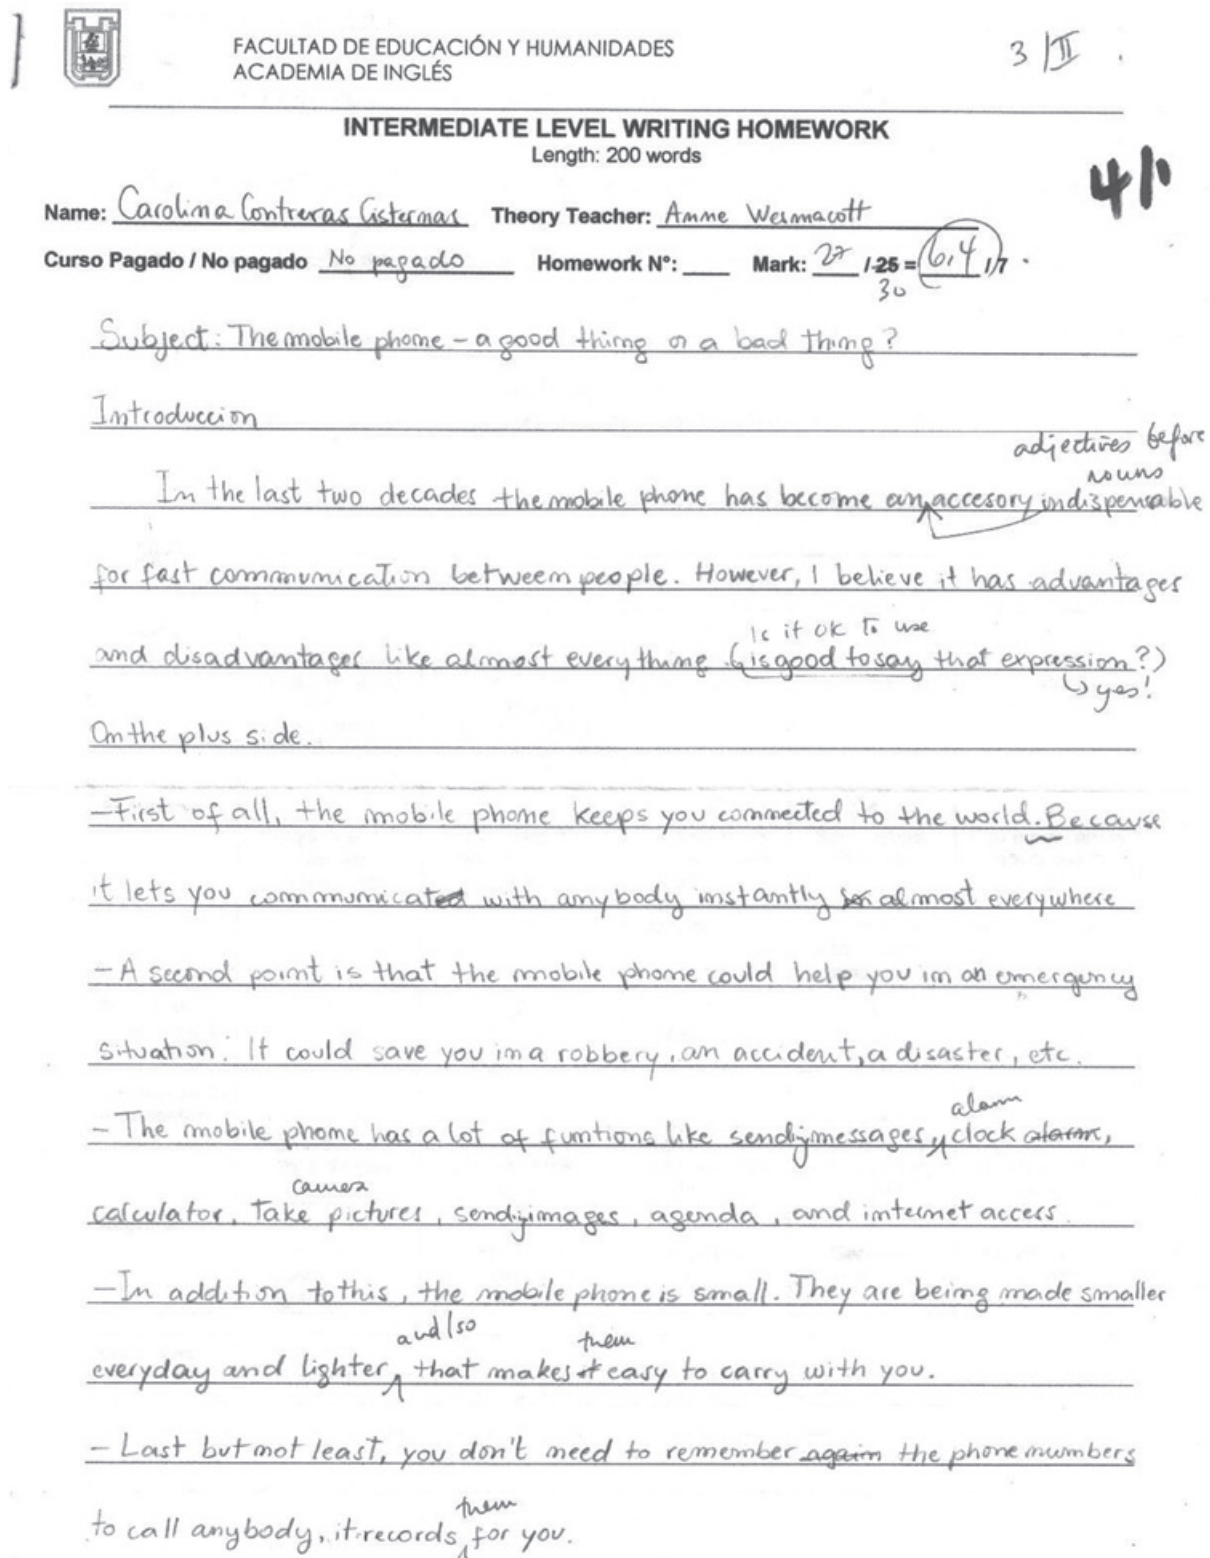 FACULTAD DE EDUCACIÓN Y HUMANIDADES
ACADEMIA DE INGLÉS
3/II.
INTERMEDIATE LEVEL WRITING HOMEWORK
Length: 200 words
Name: Carolina Contreras Cisternas Theory Teacher: Anne Wesmacott
Curso Pagado / No pagado No pagado Homework N°: ____ Mark: 27 /25 = 6,4 /7
30
Subject: The mobile phone - a good thing or a bad thing?
Introduccion
adjectives before
nouns
In the last two decades the mobile phone has become an accesory indispensable
for fast communication between people. However, I believe it has advantages
Is it ok to use
and disadvantages like almost everything. (is good to say that expression?)
yes!
On the plus side.
- First of all, the mobile phone keeps you connected to the world. Because
it lets you communicate with anybody instantly almost everywhere
- A second point is that the mobile phone could help you in an emergency
situation. It could save you in a robbery, an accident, a disaster, etc.
alarm
- The mobile phone has a lot of funtions like sending messages, clock alarm,
camera
calculator, take pictures, sending images, agenda, and internet access.
- In addition to this, the mobile phone is small. They are being made smaller
and/so them
everyday and lighter, that makes it easy to carry with you.
- Last but not least, you don't need to remember again the phone numbers
them
to call anybody, it records for you.